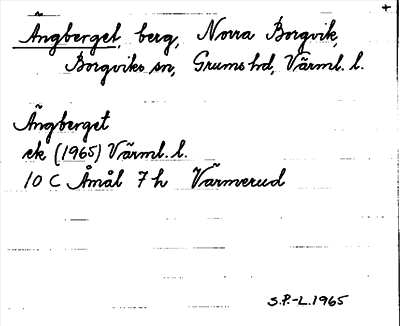 +
Ängberget, berg, Norra Borgvik,
Borgviks sn, Grums hd, Värml. l.
Ängberget
ek (1965) Värml. l.
10 C Åmål 7 h Värmerud
S.P.-L. 1965